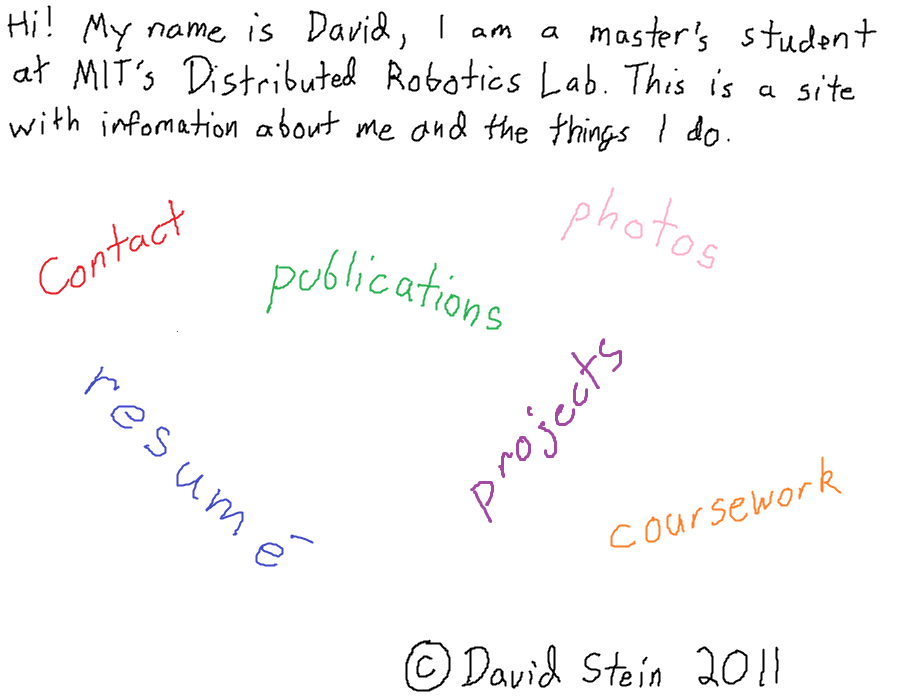 Hi! My name is David, I am a master's student
at MIT's Distributed Robotics Lab. This is a site
with infomation about me and the things I do.
Contact
publications
photos
resumé
projects
coursework
© David Stein 2011